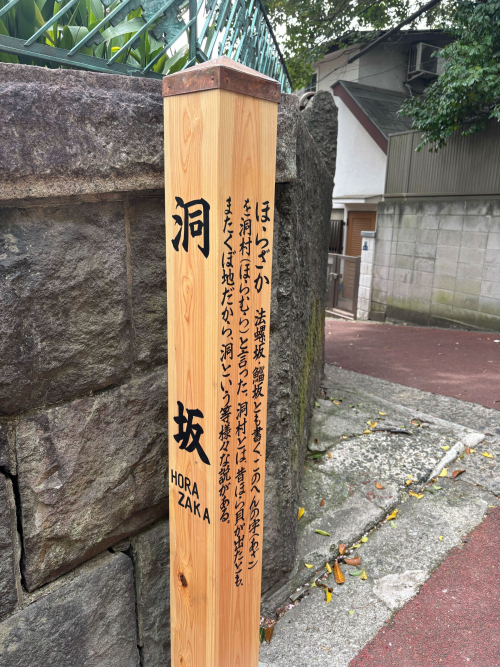 洞坂
HORA
ZAKA
ほらざか
法螺坂・鯔坂とも書く。このへんの字(あざ)
を洞村(ほらむら)と言った。洞村とは、昔ほら貝が出たいとも、
またくぼ地だから、洞という等様々な説がある。